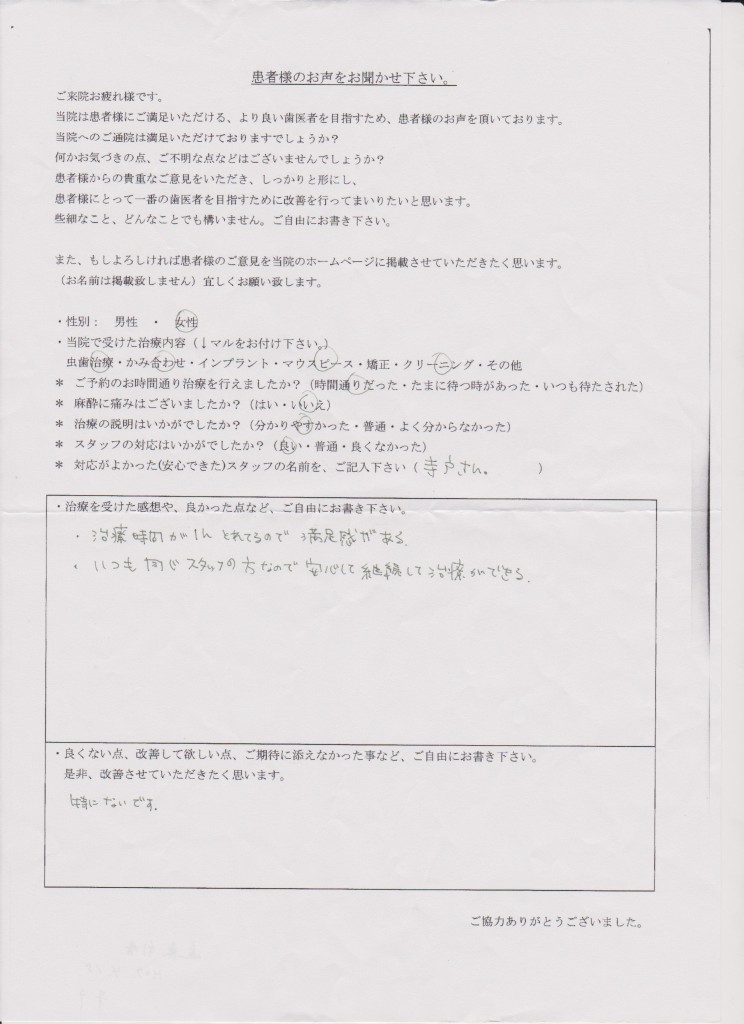 患者様のお声をお聞かせ下さい。
ご来院お疲れ様です。
当院は患者様にご満足いただける、より良い歯医者を目指すため、患者様のお声を頂いております。
当院へのご通院は満足いただけておりますでしょうか？
何かお気づきの点、ご不明な点などはございませんでしょうか？
患者様からの貴重なご意見をいただき、しっかりと形にし、
患者様にとって一番の歯医者を目指すために改善を行ってまいりたいと思います。
些細なこと、どんなことでも構いません。ご自由にお書き下さい。
また、もしよろしければ患者様のご意見を当院のホームページに掲載させていただきたく思います。
（お名前は掲載致しません）宜しくお願い致します。
・性別： 男性 ・ 女性
・当院で受けた治療内容（↓マルをお付け下さい。）
虫歯治療・かみ合わせ・インプラント・マウスピース・矯正・クリーニング・その他
＊ ご予約のお時間通り治療を行えましたか？（時間通りだった・たまに待つ時があった・いつも待たされた）
＊ 麻酔に痛みはございましたか？（はい・いいえ）
＊ 治療の説明はいかがでしたか？（分かりやすかった・普通・よく分からなかった）
＊ スタッフの対応はいかがでしたか？（良い・普通・良くなかった）
＊ 対応がよかった(安心できた)スタッフの名前を、ご記入下さい（ 寺戸さん。 ）
・治療を受けた感想や、良かった点など、ご自由にお書き下さい。
・治療時間が1h とれてるので 満足感がある。
・いつも 同じ スタッフの 方なので 安心して 継続して 治療ができる。
・良くない点、改善して欲しい点、ご期待に添えなかった事など、ご自由にお書き下さい。
是非、改善させていただきたく思います。
特に ないです。
ご協力ありがとうございました。